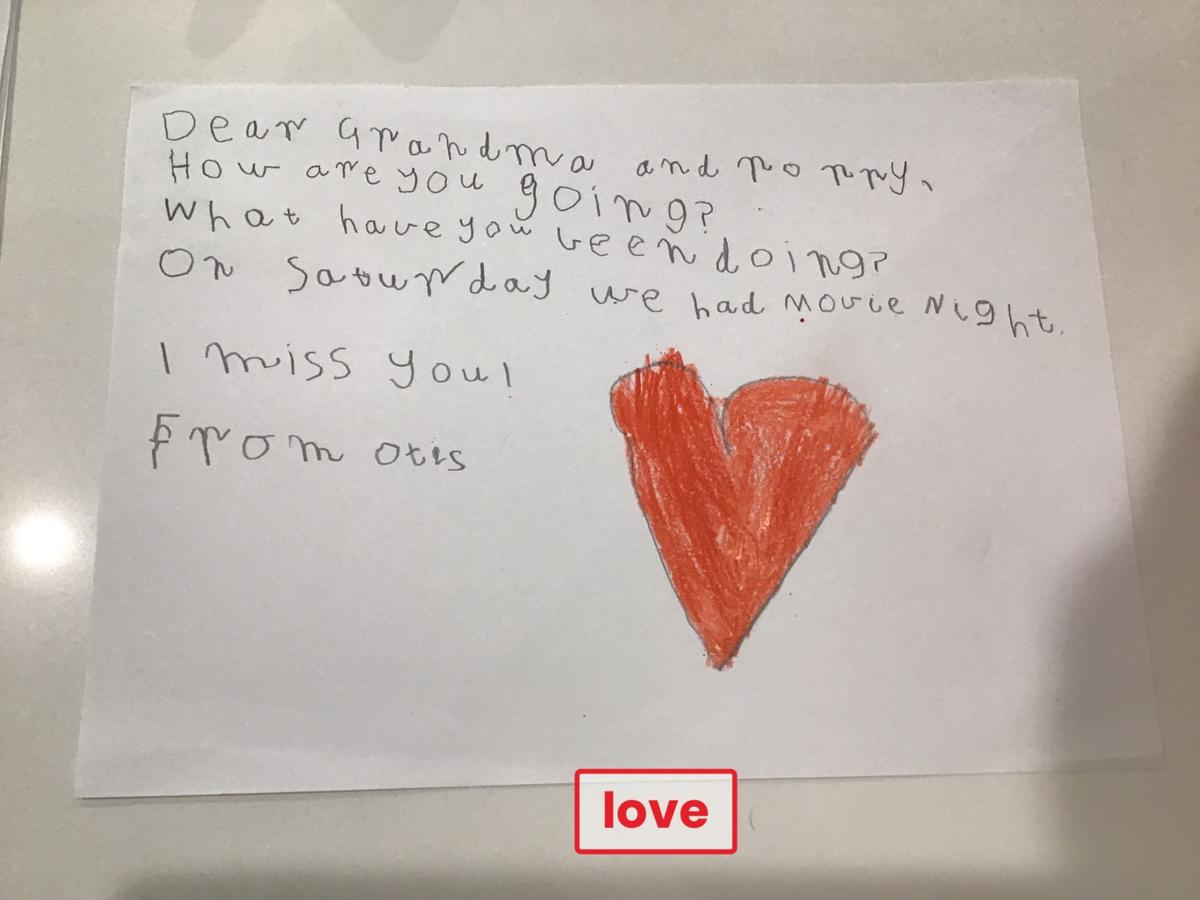 Dear Grandma and poppy,
How are you going?
What have you been doing?
On Saturday we had Movie Night.
I miss you!
From Otis
love